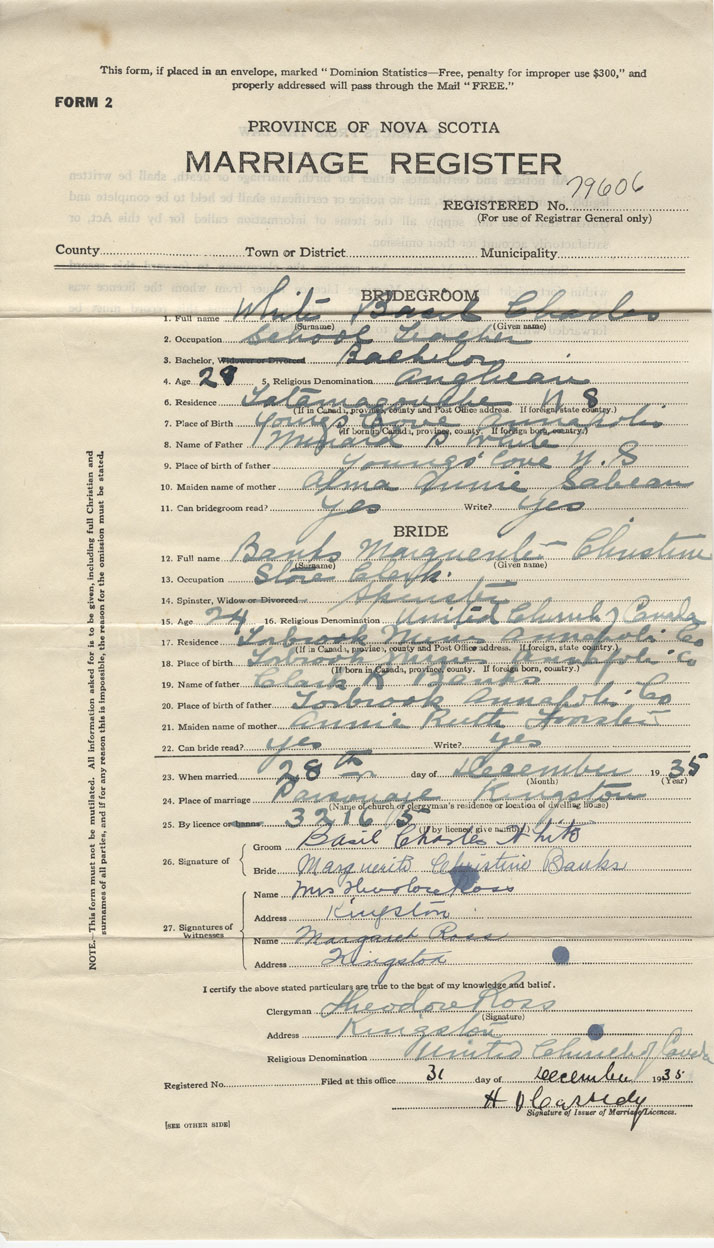 This form, if placed in an envelope, marked "Dominion Statistics—Free, penalty for improper use $300," and
properly addressed will pass through the Mail "FREE."
FORM 2
PROVINCE OF NOVA SCOTIA
MARRIAGE REGISTER
REGISTERED No. 79606
(For use of Registrar General only)
County Town or District Municipality
BRIDEGROOM
1. Full name White Basil Charles
(Surname) (Given name)
2. Occupation School Teacher
3. Bachelor, Widower or Divorced Bachelor
4. Age 28 5. Religious Denomination Anglican
6. Residence Tatamagouche N S
(If in Canada, province, county and Post Office address. If foreign, state country.)
7. Place of Birth Youngs Cove Annapolis
(If born in Canada, province, county. If foreign born, country.)
8. Name of Father Minard B White
9. Place of birth of father Youngs Cove N. S
10. Maiden name of mother Alma Annie Sabean
11. Can bridegroom read? Yes Write? Yes
BRIDE
12. Full name Banks Marguerite Christine
(Surname) (Given name)
13. Occupation Store Clerk.
14. Spinster, Widow or Divorced Spinster
15. Age 24 16. Religious Denomination United Church of Canada
17. Residence Torbrook Mines Annapolis Co
(If in Canada, province, county and Post Office address. If foreign, state country.)
18. Place of birth Torbrook Mines Annapolis Co
(If born in Canada, province, county. If foreign born, country.)
19. Name of father Clark Banks
20. Place of birth of father Torbrook Annapolis Co
21. Maiden name of mother Annie Ruth
22. Can bride read? yes Write? yes
23. When married 28th day of December 1935
(Month) (Year)
24. Place of marriage Parsonage Kingston
(Name of church or clergyman's residence or location of dwelling house)
25. By licence or banns. 32165
(If by licence, give number.)
26. Signature of
Groom Basil Charles White
Bride Marguerite Christine Banks
27. Signatures of Witnesses
Name Mrs Theodore Ross
Address Kingston
Name Margaret Ross
Address Kingston
I certify the above stated particulars are true to the best of my knowledge and belief.
Clergyman Theodore Ross
(Signature)
Address Kingston
Religious Denomination United Church of Canada
Registered No. Filed at this office 31 day of December 1935
H D Cassidy
Signature of Issuer of Marriage Licences.
[SEE OTHER SIDE]
NOTE.—This form must not be mutilated. All information asked for is to be given, including full Christian and
surnames of all parties, and if for any reason this is impossible, the reason for the omission must be stated.